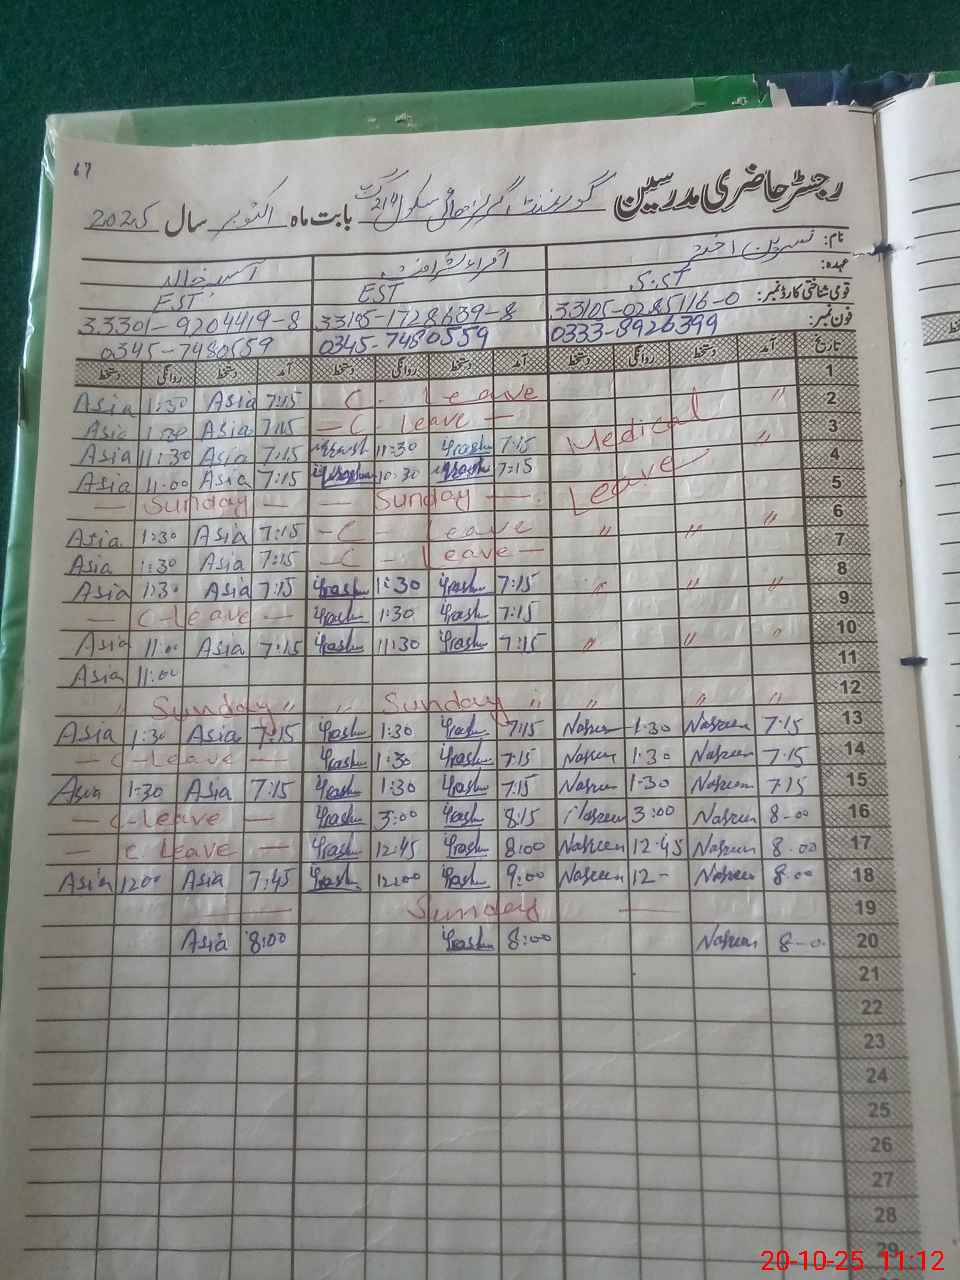 67
رجسٹر حاضری مدرسین گورنمنٹ گرلز ہائی سکول 214 گ ب بابت ماہ اکتوبر سال 2025
نام: نسرین اختر
آسیہ خالد
عہدہ: S.ST EST EST
قومی شناختی کارڈ نمبر: 33105-0285116-0 33105-1728639-8 33301-9204419-8
فون نمبر: 0333-8926399 0345-7480559 0345-7480559
تاریخ آمد دستخط روانگی دستخط آمد دستخط روانگی دستخط آمد دستخط روانگی دستخط
1
Asia 1:30 Asia 7:15 C - Leave " 2
Asia 1:30 Asia 7:15 - C - Leave - Medical 3
Asia 11:30 Asia 7:15 Yrash 11:30 Yrash 7:15 " 4
Asia 11:00 Asia 7:15 Yrash 10:30 Yrash 7:15 Leave 5
- Sunday - - Sunday - 6
Asia 1:30 Asia 7:15 - C - Leave " " " 7
Asia 1:30 Asia 7:15 - C - Leave - 8
Asia 1:30 Asia 7:15 Yrash 1:30 Yrash 7:15 " " " 9
- C-Leave - Yrash 1:30 Yrash 7:15 10
Asia 11:00 Asia 7:15 Yrash 11:30 Yrash 7:15 " " " 11
Asia 11:00
" Sunday " " Sunday " " " " 12
Asia 1:30 Asia 7:15 Yrash 1:30 Yrash 7:15 Nasreen 1:30 Nasreen 7:15 13
- C-Leave - Yrash 1:30 Yrash 7:15 Nasreen 1:30 Nasreen 7:15 14
Asia 1:30 Asia 7:15 Yrash 1:30 Yrash 7:15 Nasreen 1:30 Nasreen 7:15 15
- C-Leave - Yrash 3:00 Yrash 8:15 Nasreen 3:00 Nasreen 8-00 16
- C Leave - Yrash 12:45 Yrash 8:00 Nasreen 12:45 Nasreen 8.00 17
Asia 1200 Asia 7:45 Yrash 12:00 Yrash 9:00 Nasreen 12- Nasreen 8.00 18
Sunday 19
Asia 8:00 Yrash 8:00 Nasreen 8-0 20
21
22
23
24
25
26
27
28
29
20-10-25 11:12